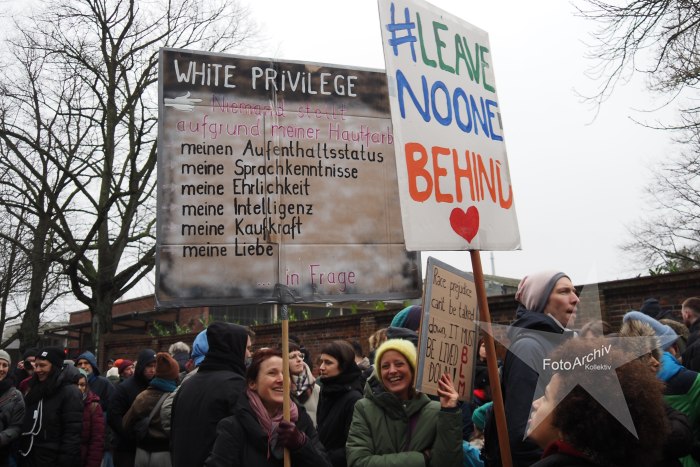 WHITE PRIVILEGE
Niemand stellt
aufgrund meiner Hautfarbe
meinen Aufenthaltsstatus
meine Sprachkenntnisse
meine Ehrlichkeit
meine Intelligenz
meine Kaufkraft
meine Liebe
... in Frage
#LEAVE
NOONE
BEHIND
Race prejudice
cant be talked
down IT MUST
BE LIVED
DOWN!
FotoArchiv
Kollektiv